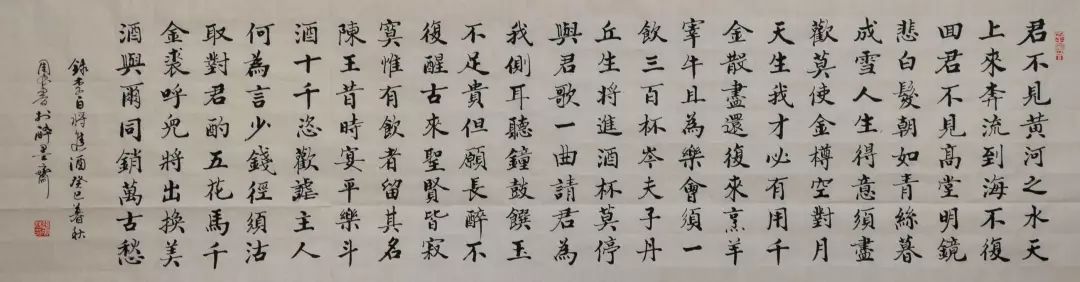 君不見黃河之水天
上來奔流到海不復
回君不見高堂明鏡
悲白髮朝如青絲暮
成雪人生得意須盡
歡莫使金樽空對月
天生我才必有用千
金散盡還復來烹羊
宰牛且為樂會須一
飲三百杯岑夫子丹
丘生將進酒杯莫停
與君歌一曲請君為
我側耳聽鐘鼓饌玉
不足貴但願長醉不
復醒古來聖賢皆寂
寞惟有飲者留其名
陳王昔時宴平樂斗
酒十千恣歡謔主人
何為言少錢徑須沽
取對君酌五花馬千
金裘呼兒將出換美
酒與爾同銷萬古愁
錄李白將進酒癸巳暮秋
於醉墨齋